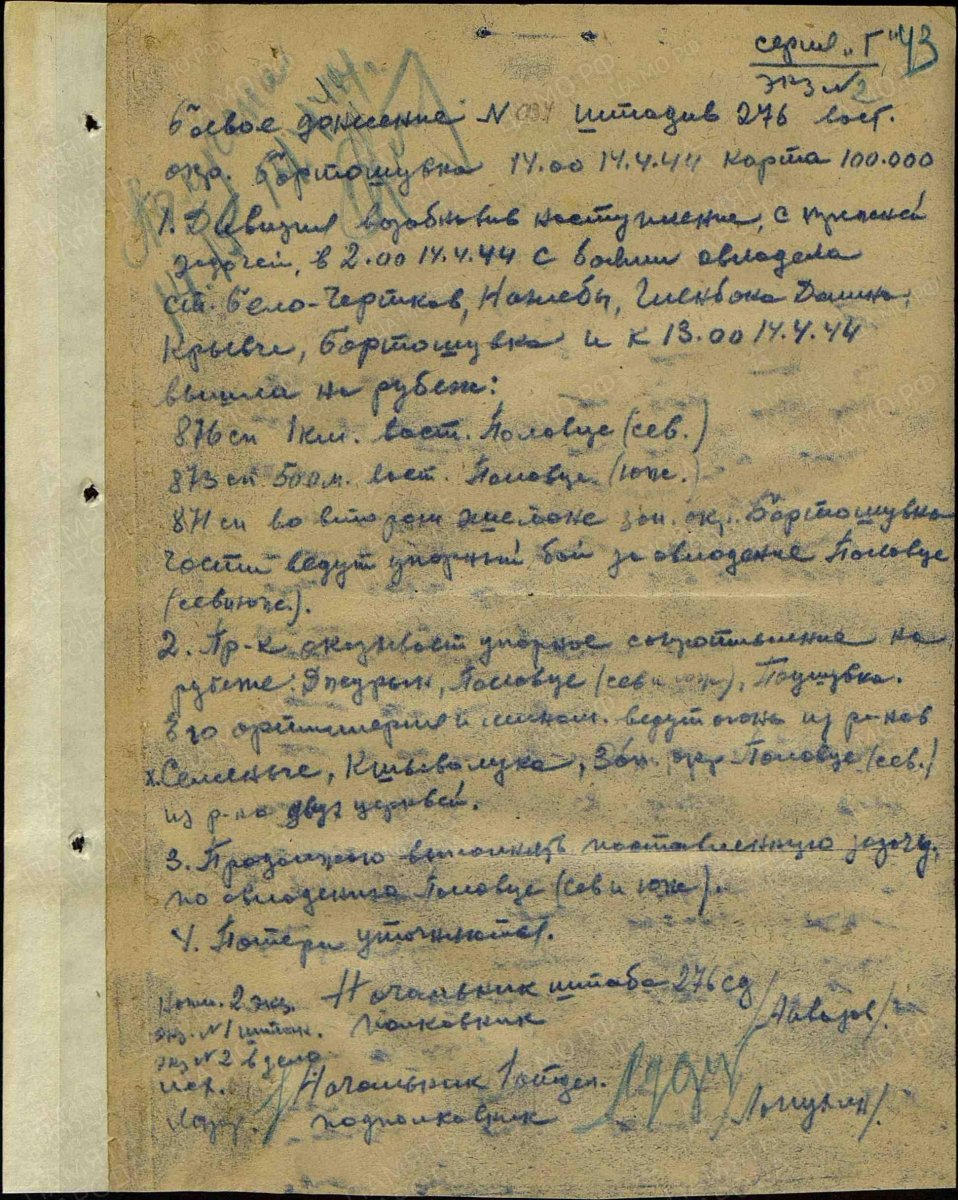 серия "Г" 43
экз №2
Боевое донесение № 094 штадив 276 вост.
окр. Бортошувка 14.00 14.4.44 карта 100.000
1. Дивизия возобновив наступление, с прежней
задачей, в 2.00 14.4.44 с боями овладела
ст. Бело-Чертков,
Крывче, Бортошувка и к 13.00 14.4.44
вышла на рубеж:
876 сп 1 км. вост. Половце (сев.)
873 сп 500 м. вост. Половце (юж.)
871 сп во втором эшелоне зап. окр. Бортошувка
части ведут упорный бой за овладение Половце
(сев и юж.).
2. Пр-к оказывает упорное сопротивление на
рубеже: Джурын, Половце (сев и юж), Паушувка.
Его артиллерия и мином. ведут огонь из р-нов
х. Семяньче, Кшывалука, Зап. окр Половце (сев.)
из р-на двух церквей.
3. Продолжаю выполнять поставленную задачу,
по овладению Половце (сев и юж).
4. Потери уточняются.
Начальник штаба 276 сд
полковник /Айвазов/.
Начальник 1 отдел.
подполковник
Копи. 2 экз.
экз. №1
экз №2 в дело
исп.